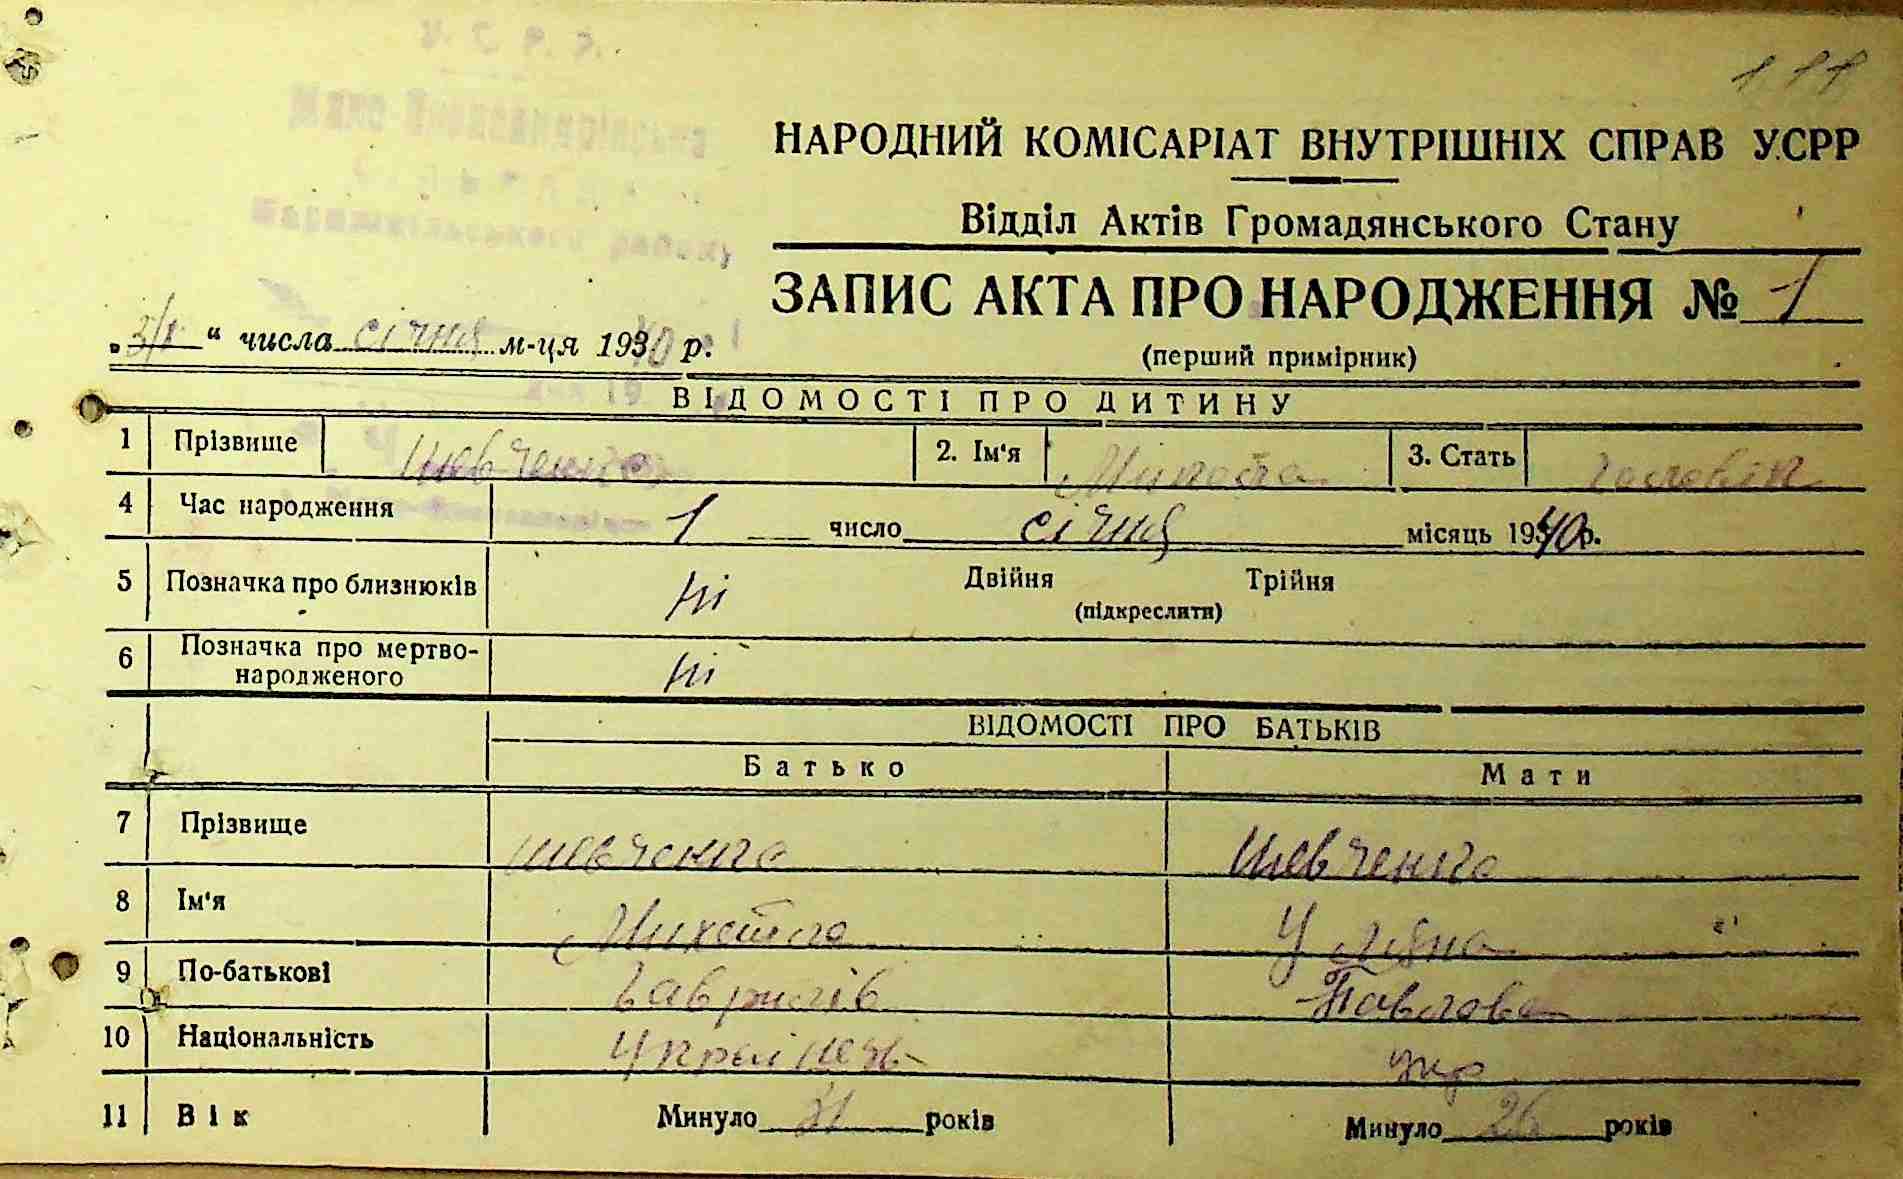 У. С. Р. Р.
району
НАРОДНИЙ КОМІСАРІАТ ВНУТРІШНІХ СПРАВ УСРР
Відділ Актів Громадянського Стану
ЗАПИС АКТА ПРО НАРОДЖЕННЯ № 1
(перший примірник)
" 3/I " числа січня м-ця 1940 р.
ВІДОМОСТІ ПРО ДИТИНУ
1 Прізвище Шевченко 2. Ім'я Микола 3. Стать чоловік
4 Час народження 1 число січня місяць 1940 р.
5 Позначка про близнюків Ні Двійня Трійня
(підкреслити)
6 Позначка про мертво-
народженого Ні
ВІДОМОСТІ ПРО БАТЬКІВ
Батько Мати
7 Прізвище Шевченко Шевченко
8 Ім'я Уляна
9 По-батькові Гаврилів Павлова
10 Національність Українець Укр
11 Вік Минуло 31 років Минуло 26 років